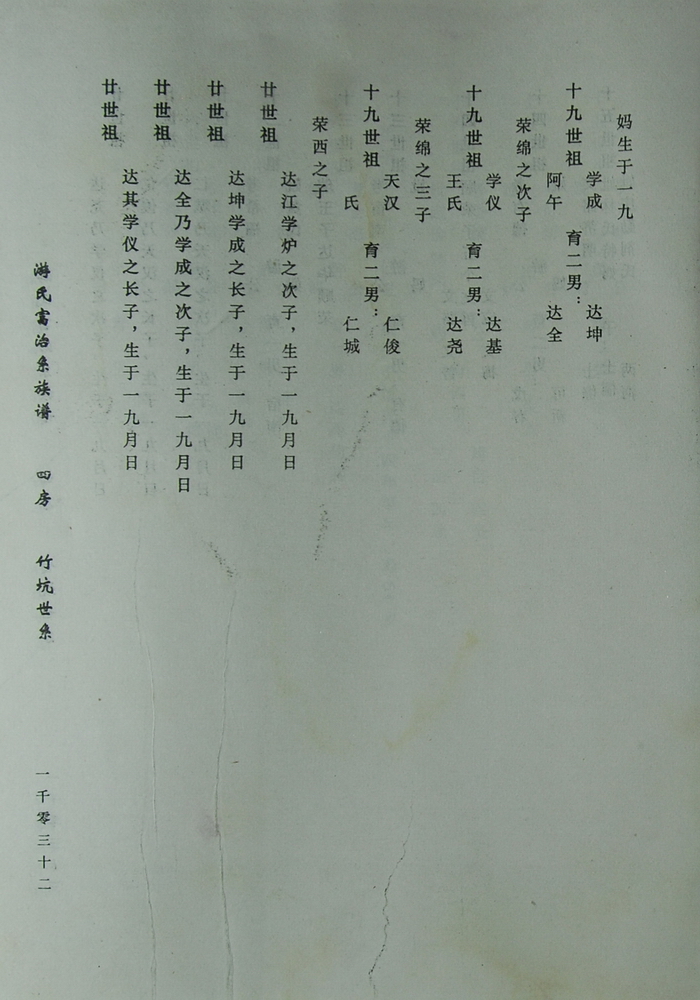 妈生于一九
十九世祖 学成 阿午 育二男： 达坤 达全
荣绵之次子
十九世祖 学仪 王氏 育二男： 达基 达尧
荣绵之三子
十九世祖 天汉 氏 育二男： 仁俊 仁城
荣西之子
廿世祖 达江学炉之次子，生于一九月日
廿世祖 达坤学成之长子，生于一九月日
廿世祖 达全乃学成之次子，生于一九月日
廿世祖 达其学仪之长子，生于一九月日
游氏富治系族谱 四房 竹坑世系 一千零三十二